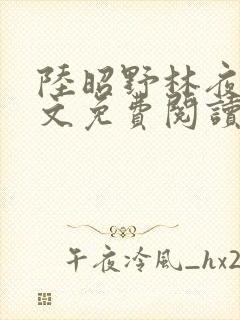 陸昭野林夜
文免費閱讀
午夜冷風_hx2